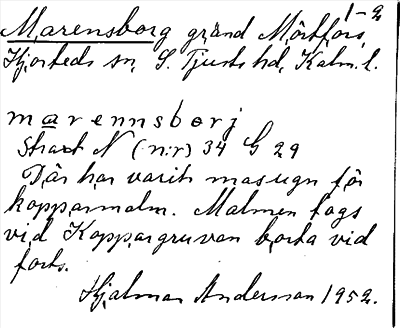 1-2
Marensborg gränd Mörtfors,
Hjorteds sn, S. Tjusts hd, Kalm. l.
marennsborj
Strax N (nr) 34 G 29
Där har varit masugn för
kopparmalm. Malmen togs
vid Koppargruvan borta vid
forts.
Hjalmar Andersson 1952.